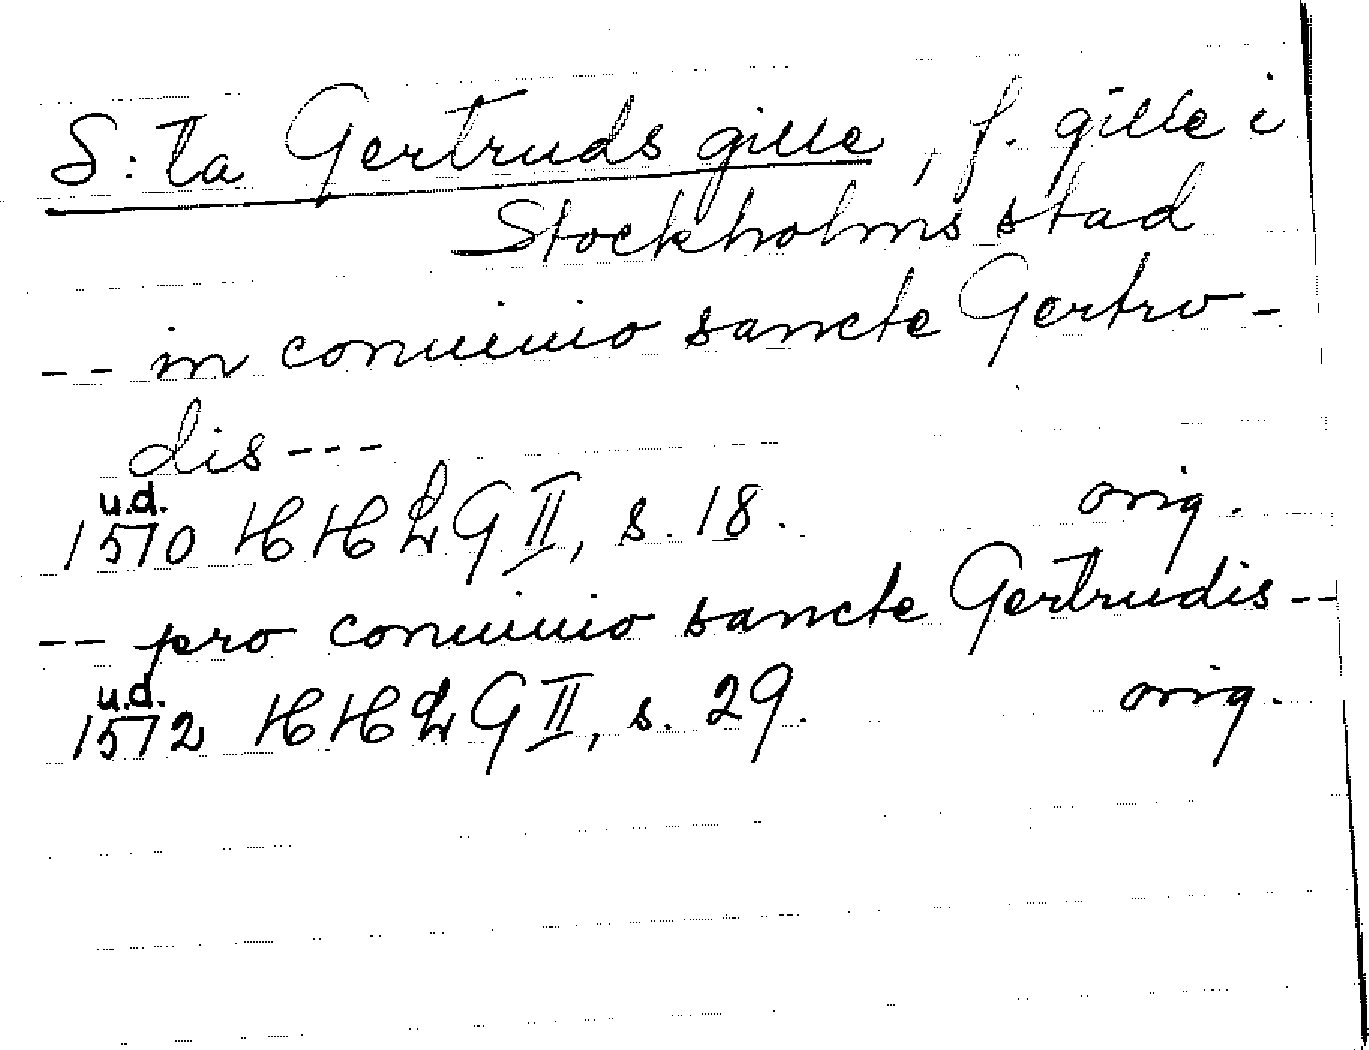 S:ta Gertruds gille, f. gille i
Stockholms stad
-- in conuiuio sancte Gertru-
dis ---
u.d.
1570 HHLG II, s. 18. orig.
-- pro conuiuio sancte Gertrudis --
u.d.
1572 HHLG II, s. 29. orig.